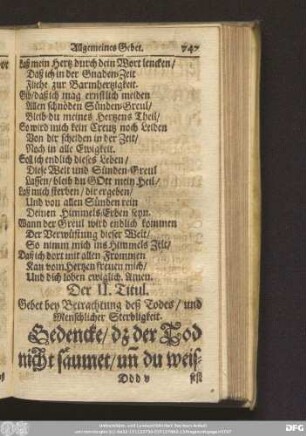 Allgemeines Gebet. 747
Laß mein Hertz durch dein Wort lencken/
Daß ich in der Gnaden-Zeit
Fliehe zur Barmhertzigkeit.
Gib/daß ich mag ernstlich meiden
Allen schnöden Sünden-Greul/
Bleib du meines Hertzens Theil/
So wird mich kein Creutz noch Leiden
Von dir scheiden in der Zeit/
Noch in alle Ewigkeit.
Soll ich endlich dieses Leben/
Diese Welt und Sünden-Greul
Lassen/ bleib du GOtt mein Heil/
Laß mich sterben/ dir ergeben/
Und von allen Sünden rein
Deinen Himmels-Erben seyn.
Wann der Greul wird endlich kommen
Der Verwüstung dieser Welt/
So nimm mich ins Himmels Zelt/
Daß ich dort mit allen Frommen
Kan vom Hertzen freuen mich/
Und dich loben ewiglich. Amen.
Der II. Titul.
Gebet bey Betrachtung deß Todes/ und
Menschlicher Sterbligkeit.
Gedencke/ dz der Tod
nicht saumet/ uñ du weis-
Ddd v
sest